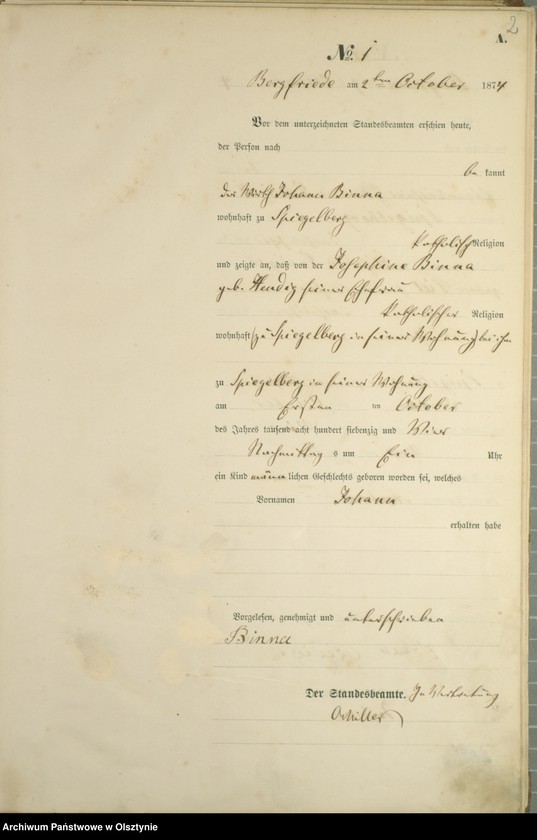 2
A.
No. 1
Bergfriede am 2ten October 1874
Vor dem unterzeichneten Standesbeamten erschien heute,
der Person nach
be kannt
der Wirth Johann Binna
wohnhaft zu Spiegelberg
katholisch Religion
und zeigte an, daß von der Josephine Binna
geb. seiner Ehefrau
katholischer Religion
wohnhaft (zu Spiegelberg in seiner Wohnung) bei ihm
zu Spiegelberg in seiner Wohnung
am Ersten ten October
des Jahres tausend acht hundert siebenzig und Vier
Nachmittag s um Ein Uhr
ein Kind männ lichen Geschlechts geboren worden sei, welches
Vornamen Johann
erhalten habe
Vorgelesen, genehmigt und unterschrieben
Binna
Der Standesbeamte. In Vertretung
Archiwum Państwowe w Olsztynie